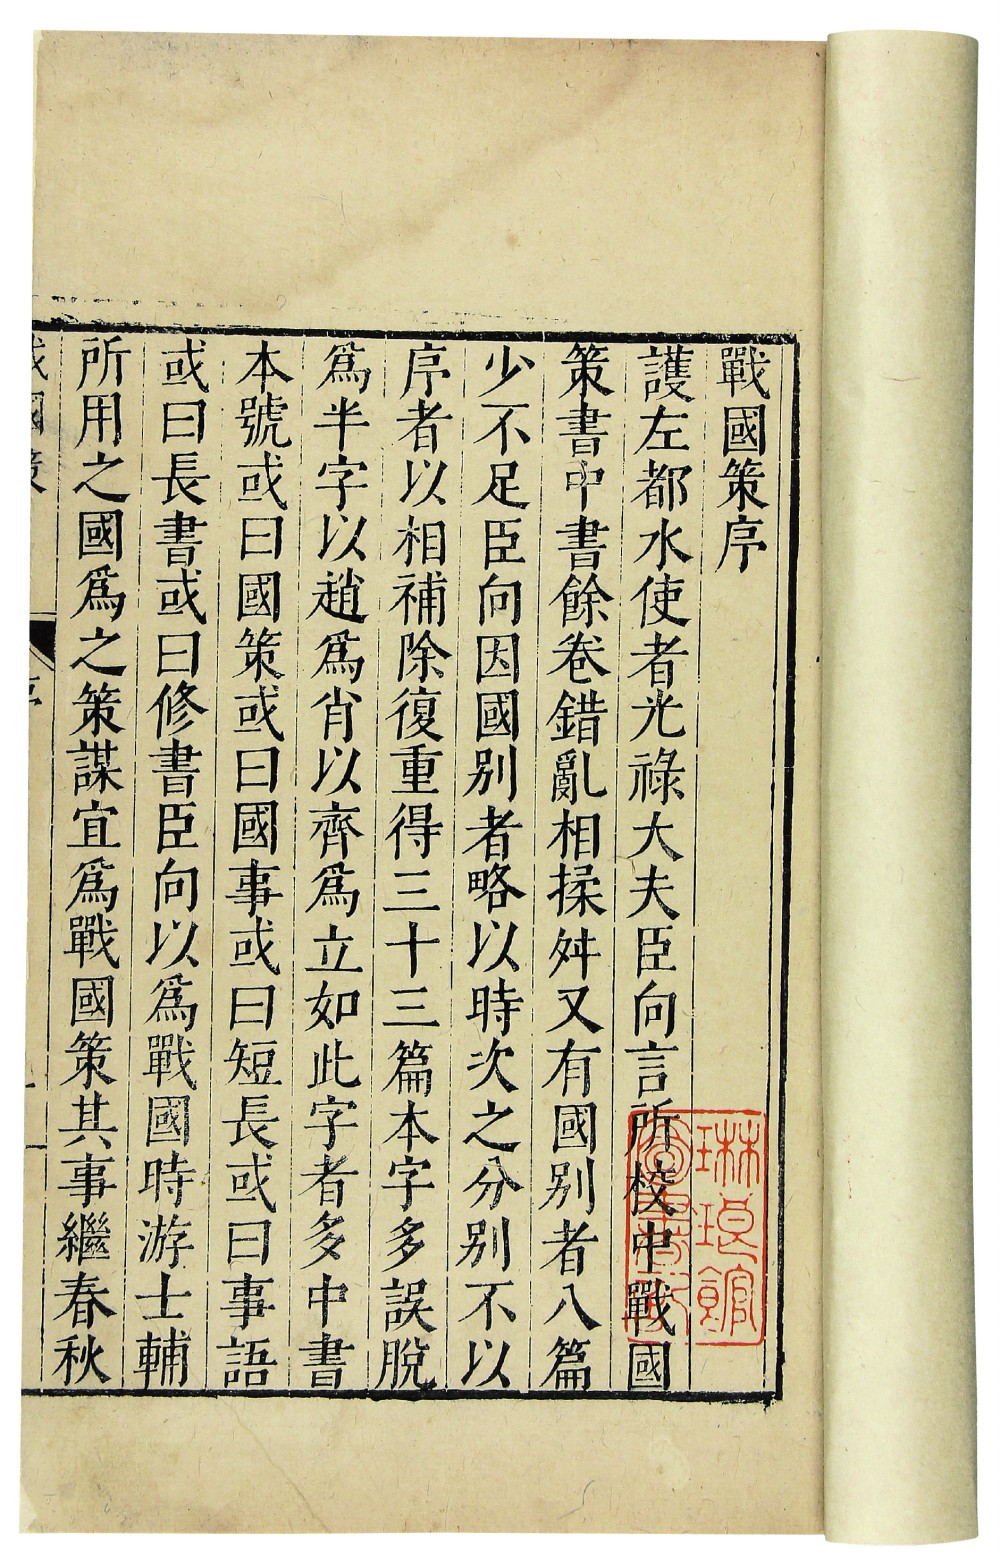 戰國策序
護左都水使者光祿大夫臣向言所校中戰國
策書中書餘卷錯亂相揉舛又有國别者八篇
少不足臣向因國别者略以時次之分别不以
序者以相補除復重得三十三篇本字多誤脫
爲半字以趙爲肖以齊爲立如此字者多中書
本號或曰國策或曰國事或曰短長或曰事語
或曰長書或曰修書臣向以爲戰國時游士輔
所用之國爲之策謀宜爲戰國策其事繼春秋
戰國策
序
一
琳琅館